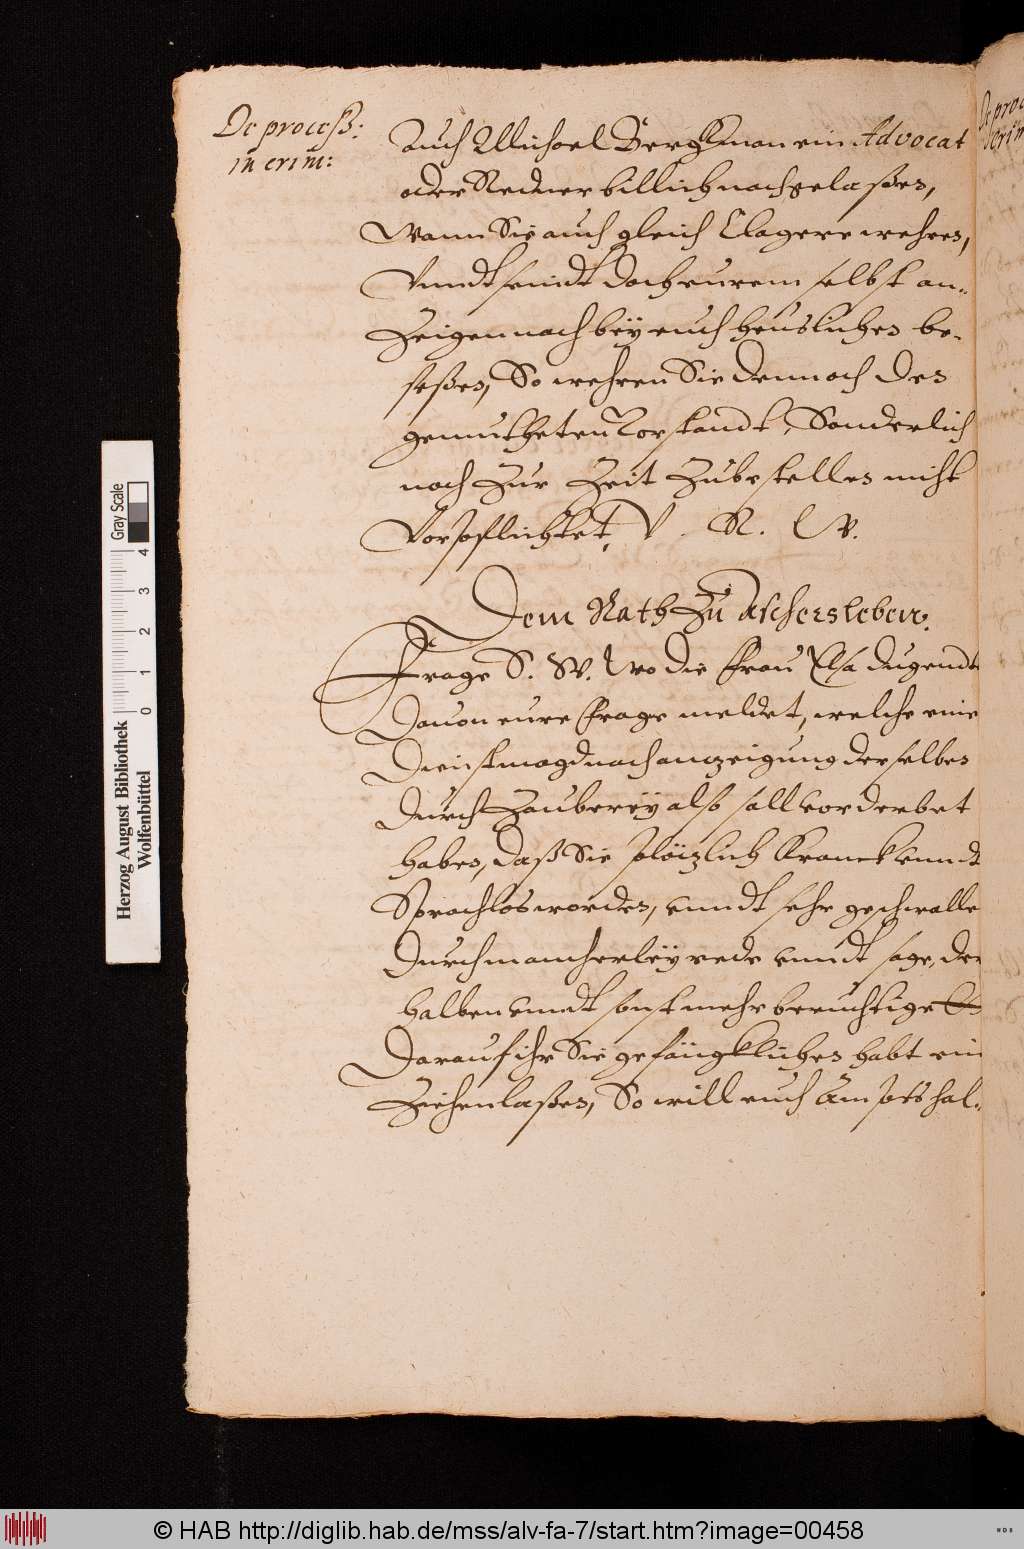 De proceß:
in crim:
Auch Michael Bergkman ein Advocat
oder Redner billich nachgelaßen,
Wann Sie auch gleich Clagere wehren,
Vnndt seindt doch eurem selbst an-
Zeigen nach bey euch heuslichen be-
seßen, So wehren Sie dennoch den
gemutheten Vorstandt, Sonderlich
noch Zur Zeit Zubestellen nicht
Vorpflichtet, V. R. W.
Dem Rath Zu Aschersleben.
Frage S. W. Wo die Frau Ilsa dugendt
Dauon eure Frage meldet, welche eine
Dienstmagd nach anzeigung derselben
durch Zauberey also soll vorderbet
haben, daß Sie plözlich Kranck vnndt
Sprachlos worden, vnndt sehr geschwolle
Durch mancherley rede vnndt sage, der
halben vnndt sonst mehr beruchtiget
Darauf ihr Sie gefängklichen habt ein
Ziehen laßen, So will euch Ampts hal-
Gray Scale
0 1 2 3 4
Herzog August Bibliothek
Wolfenbüttel
© HAB http://diglib.hab.de/mss/alv-fa-7/start.htm?image=00458